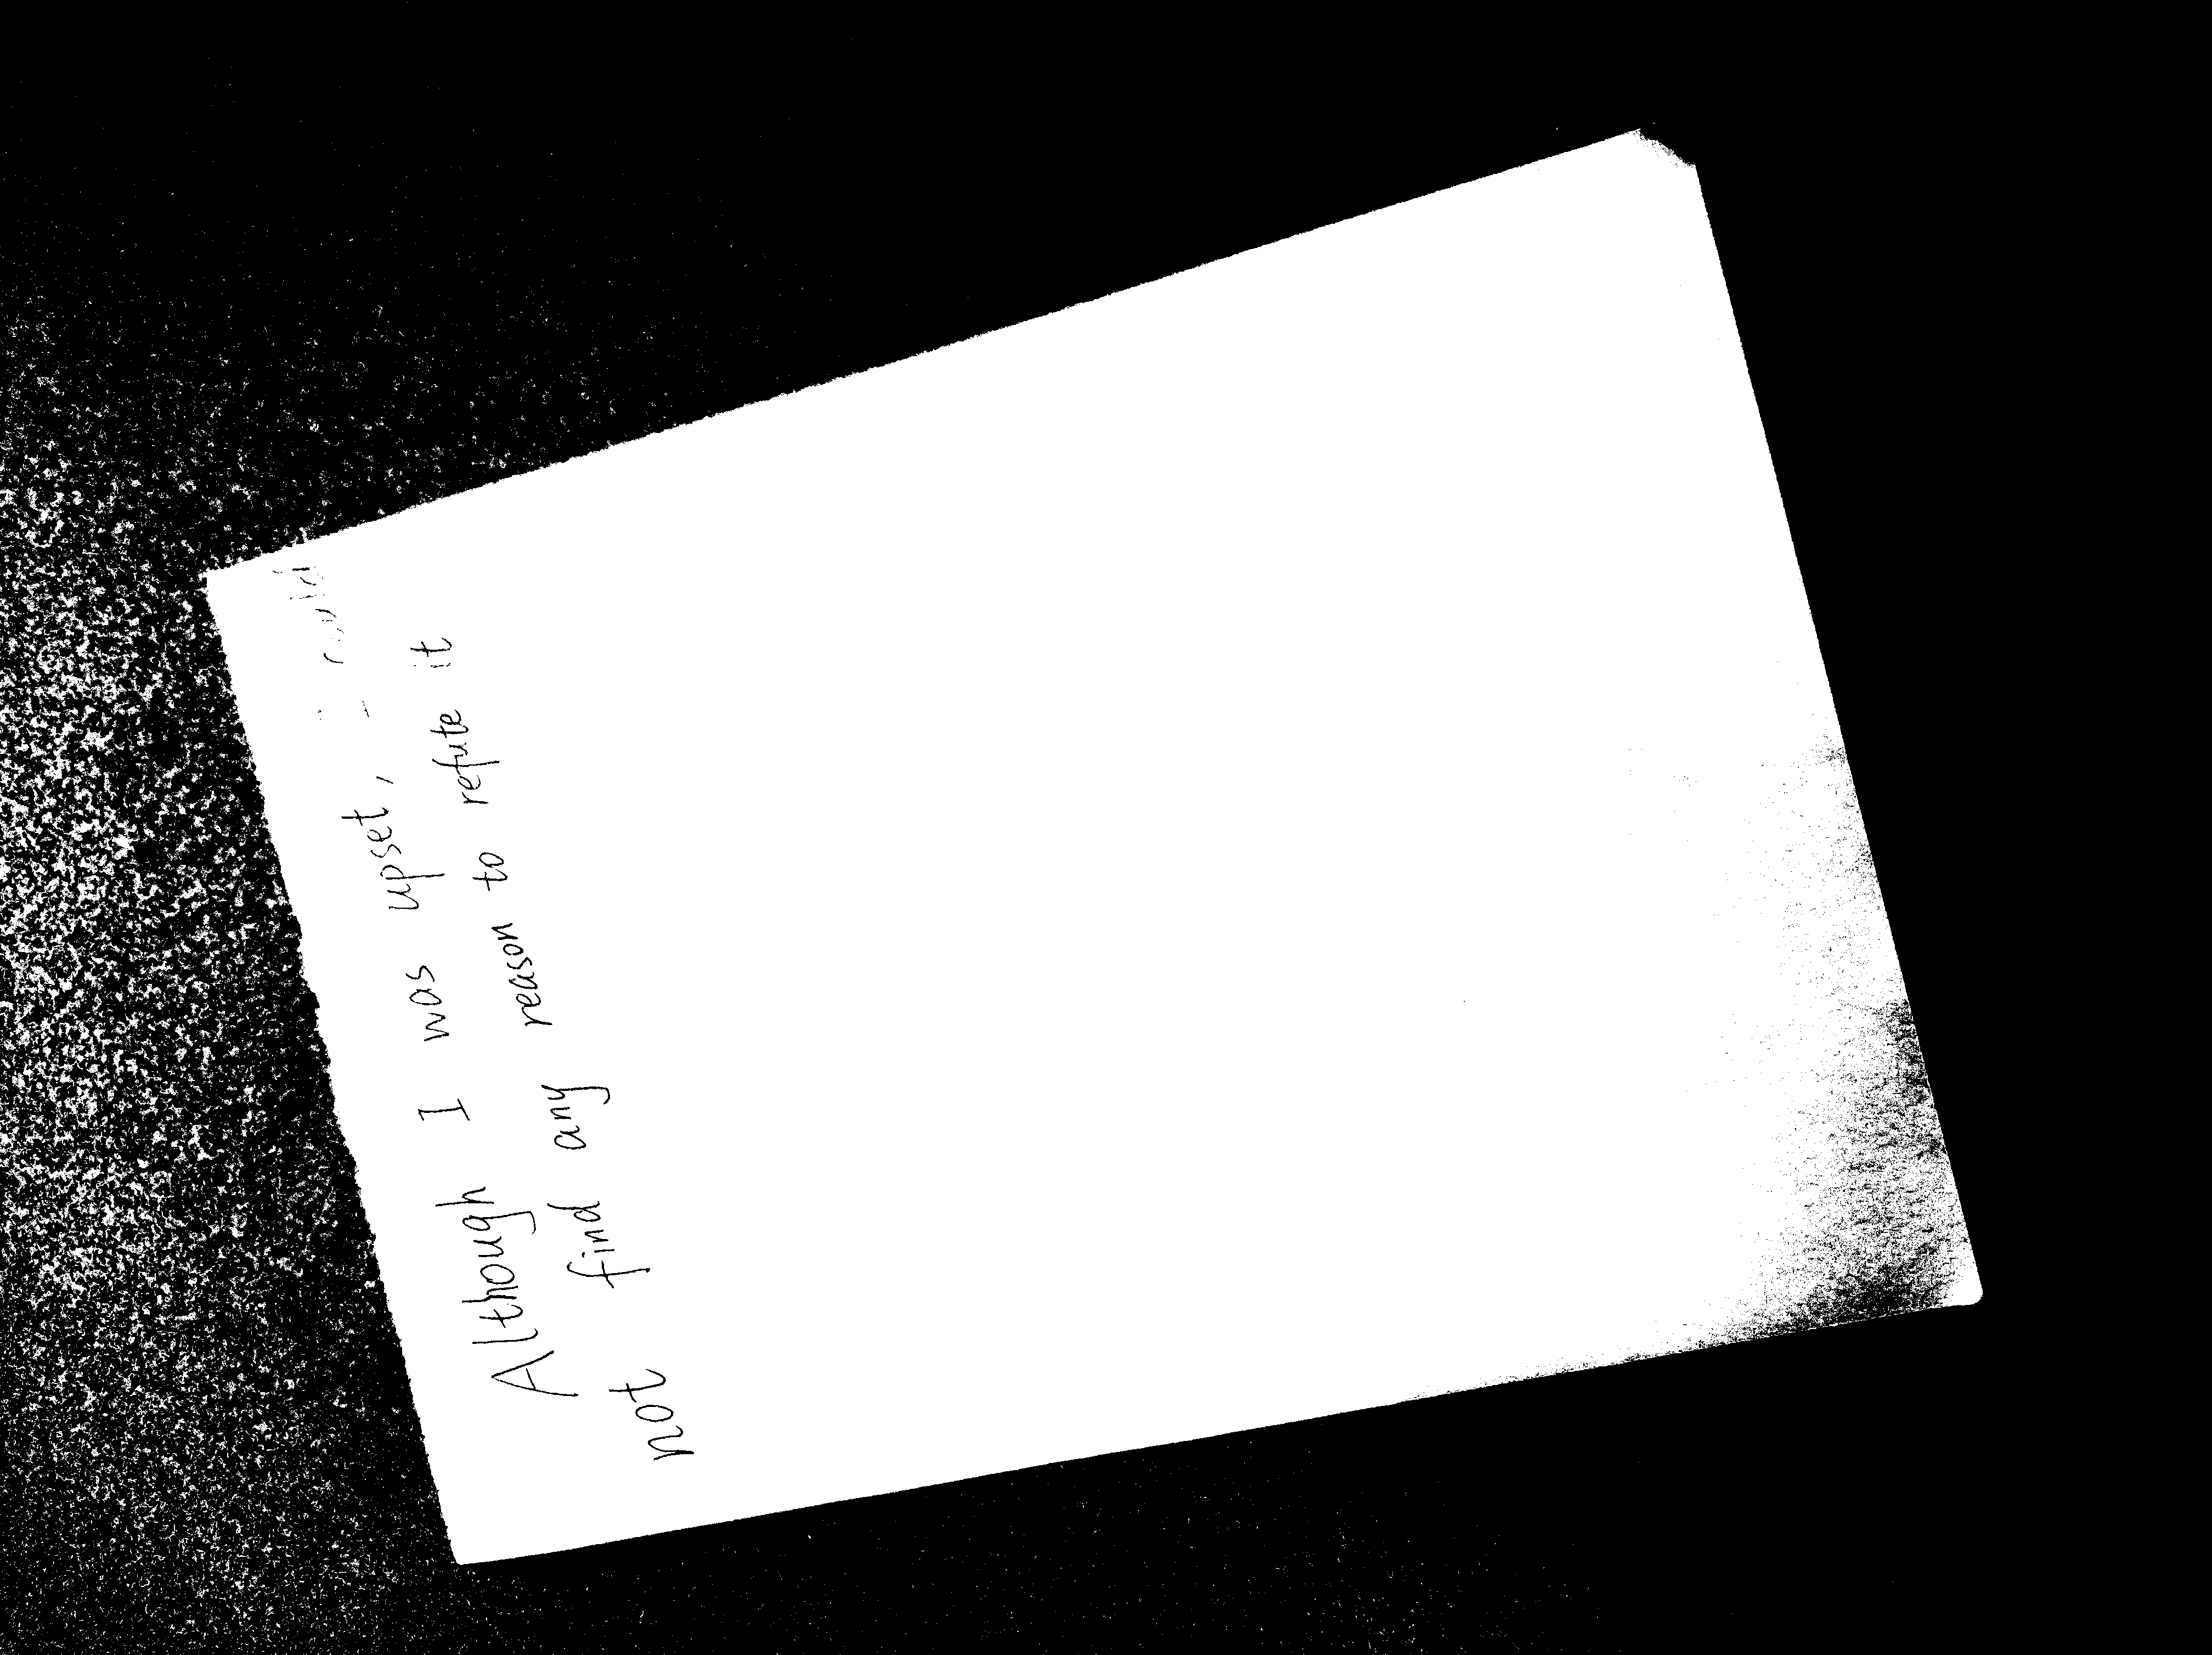 Although I was upset, I could
not find any reason to refute it